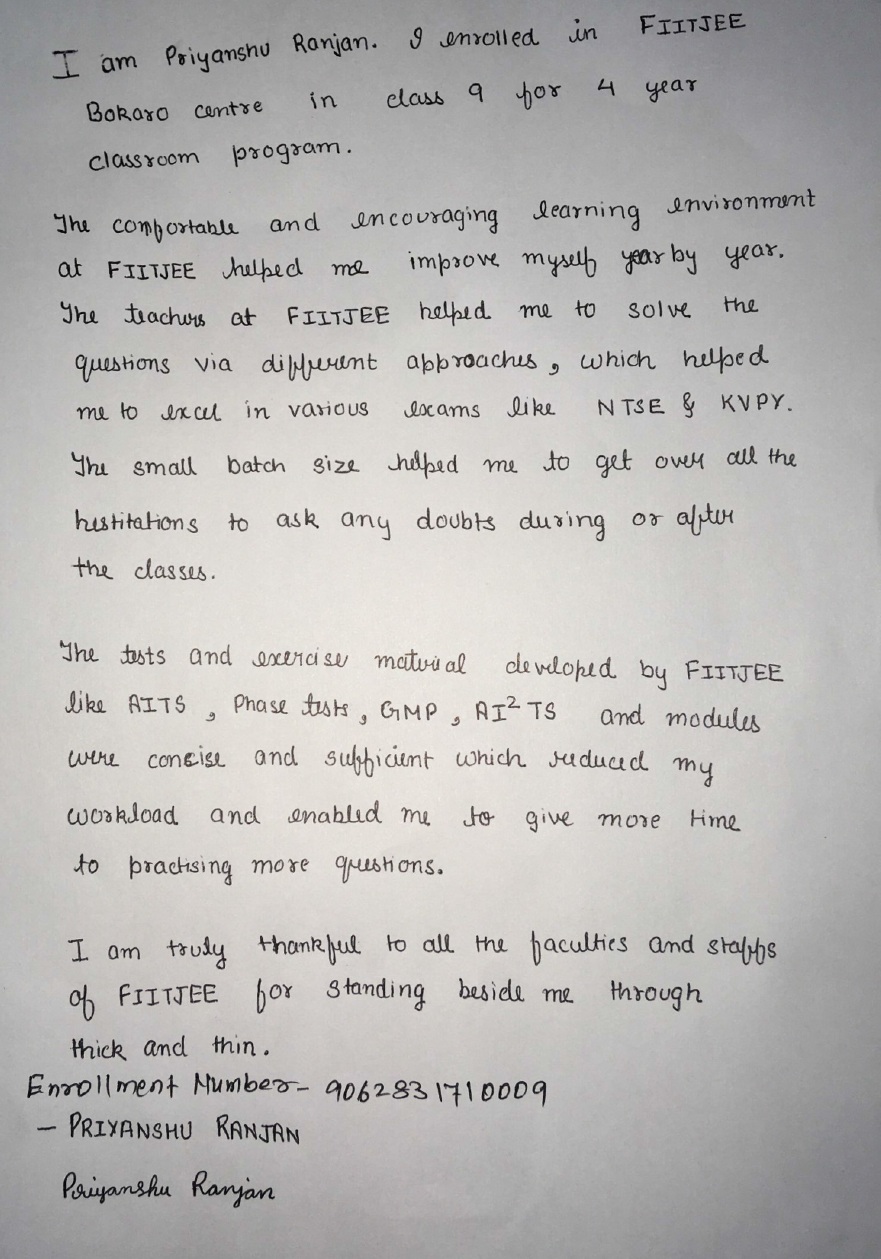 I am Priyanshu Ranjan. I enrolled in FIITJEE
Bokaro centre in class 9 for 4 year
classroom program.
The comfortable and encouraging learning environment
at FIITJEE helped me improve myself year by year.
The teachers at FIITJEE helped me to solve the
questions via different approaches, which helped
me to excel in various exams like NTSE & KVPY.
The small batch size helped me to get over all the
hestitations to ask any doubts during or after
the classes.
The tests and exercise material developed by FIITJEE
like AITS, Phase tests, GMP, AI²TS and modules
were concise and sufficient which reduced my
workload and enabled me to give more time
to practising more questions.
I am truly thankful to all the faculties and staffs
of FIITJEE for standing beside me through
thick and thin.
Enrollment Number- 9062831710009
- PRIYANSHU RANJAN
Priyanshu Ranjan